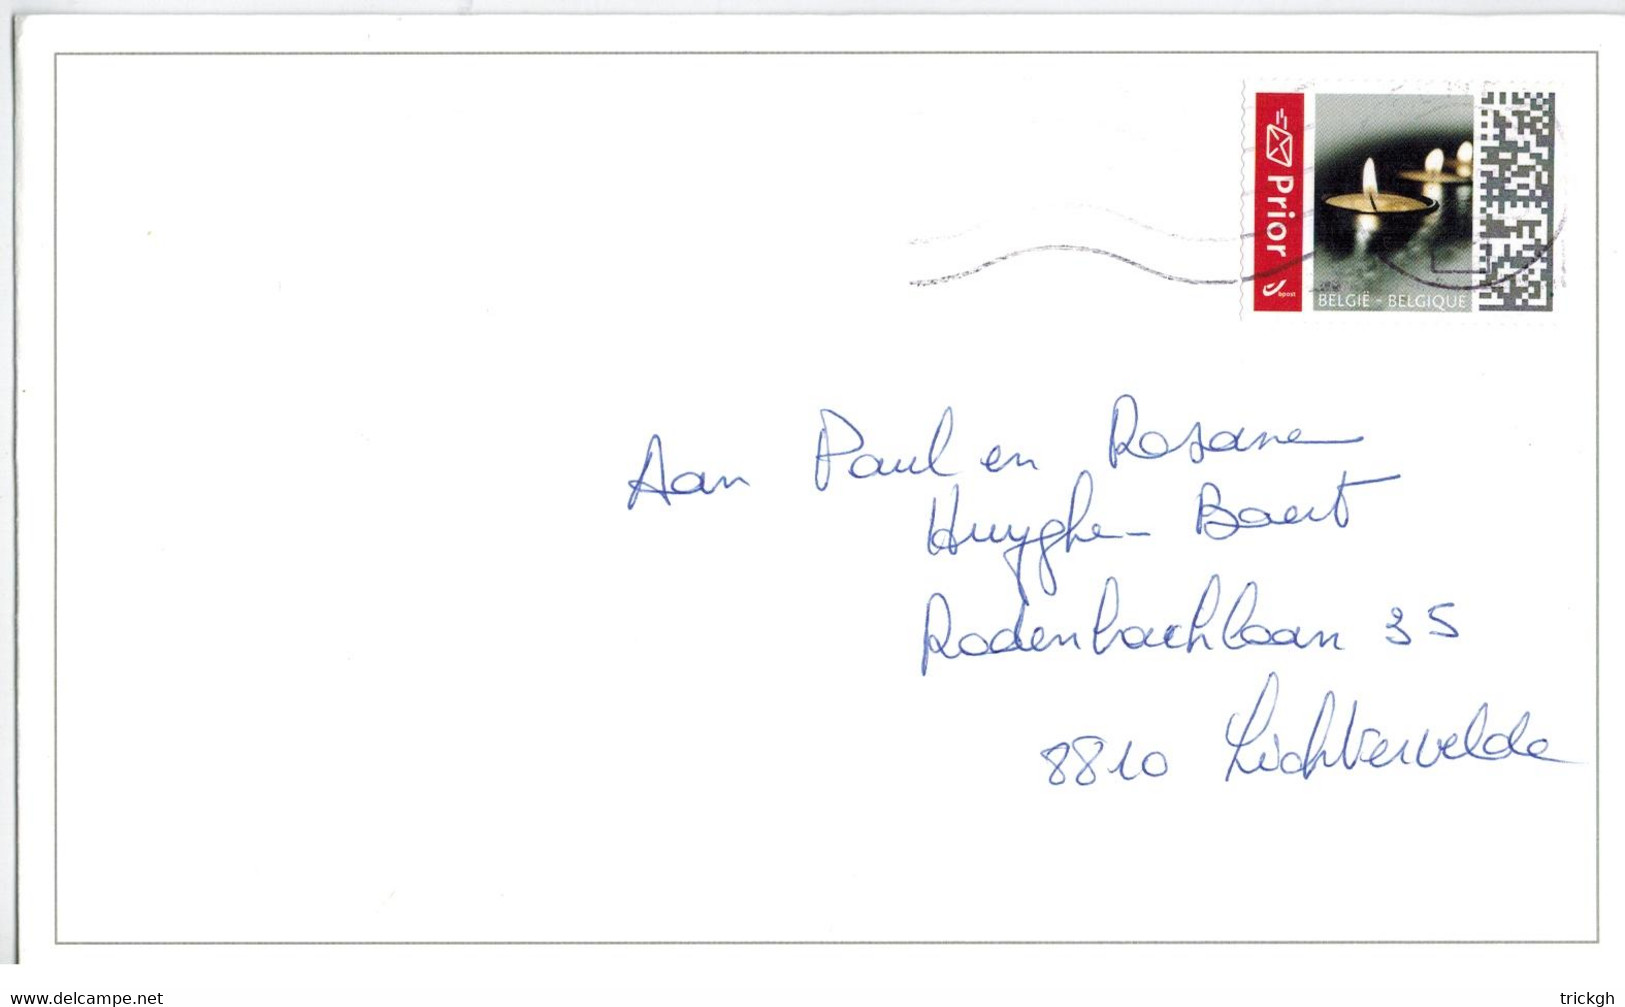 Prior
bpost
BELGIË - BELGIQUE
Aan Paul en Rosane
Huyghe - Baert
Rodenbachlaan 35
8810 Lichtervelde
www.delcampe.net
trickgh